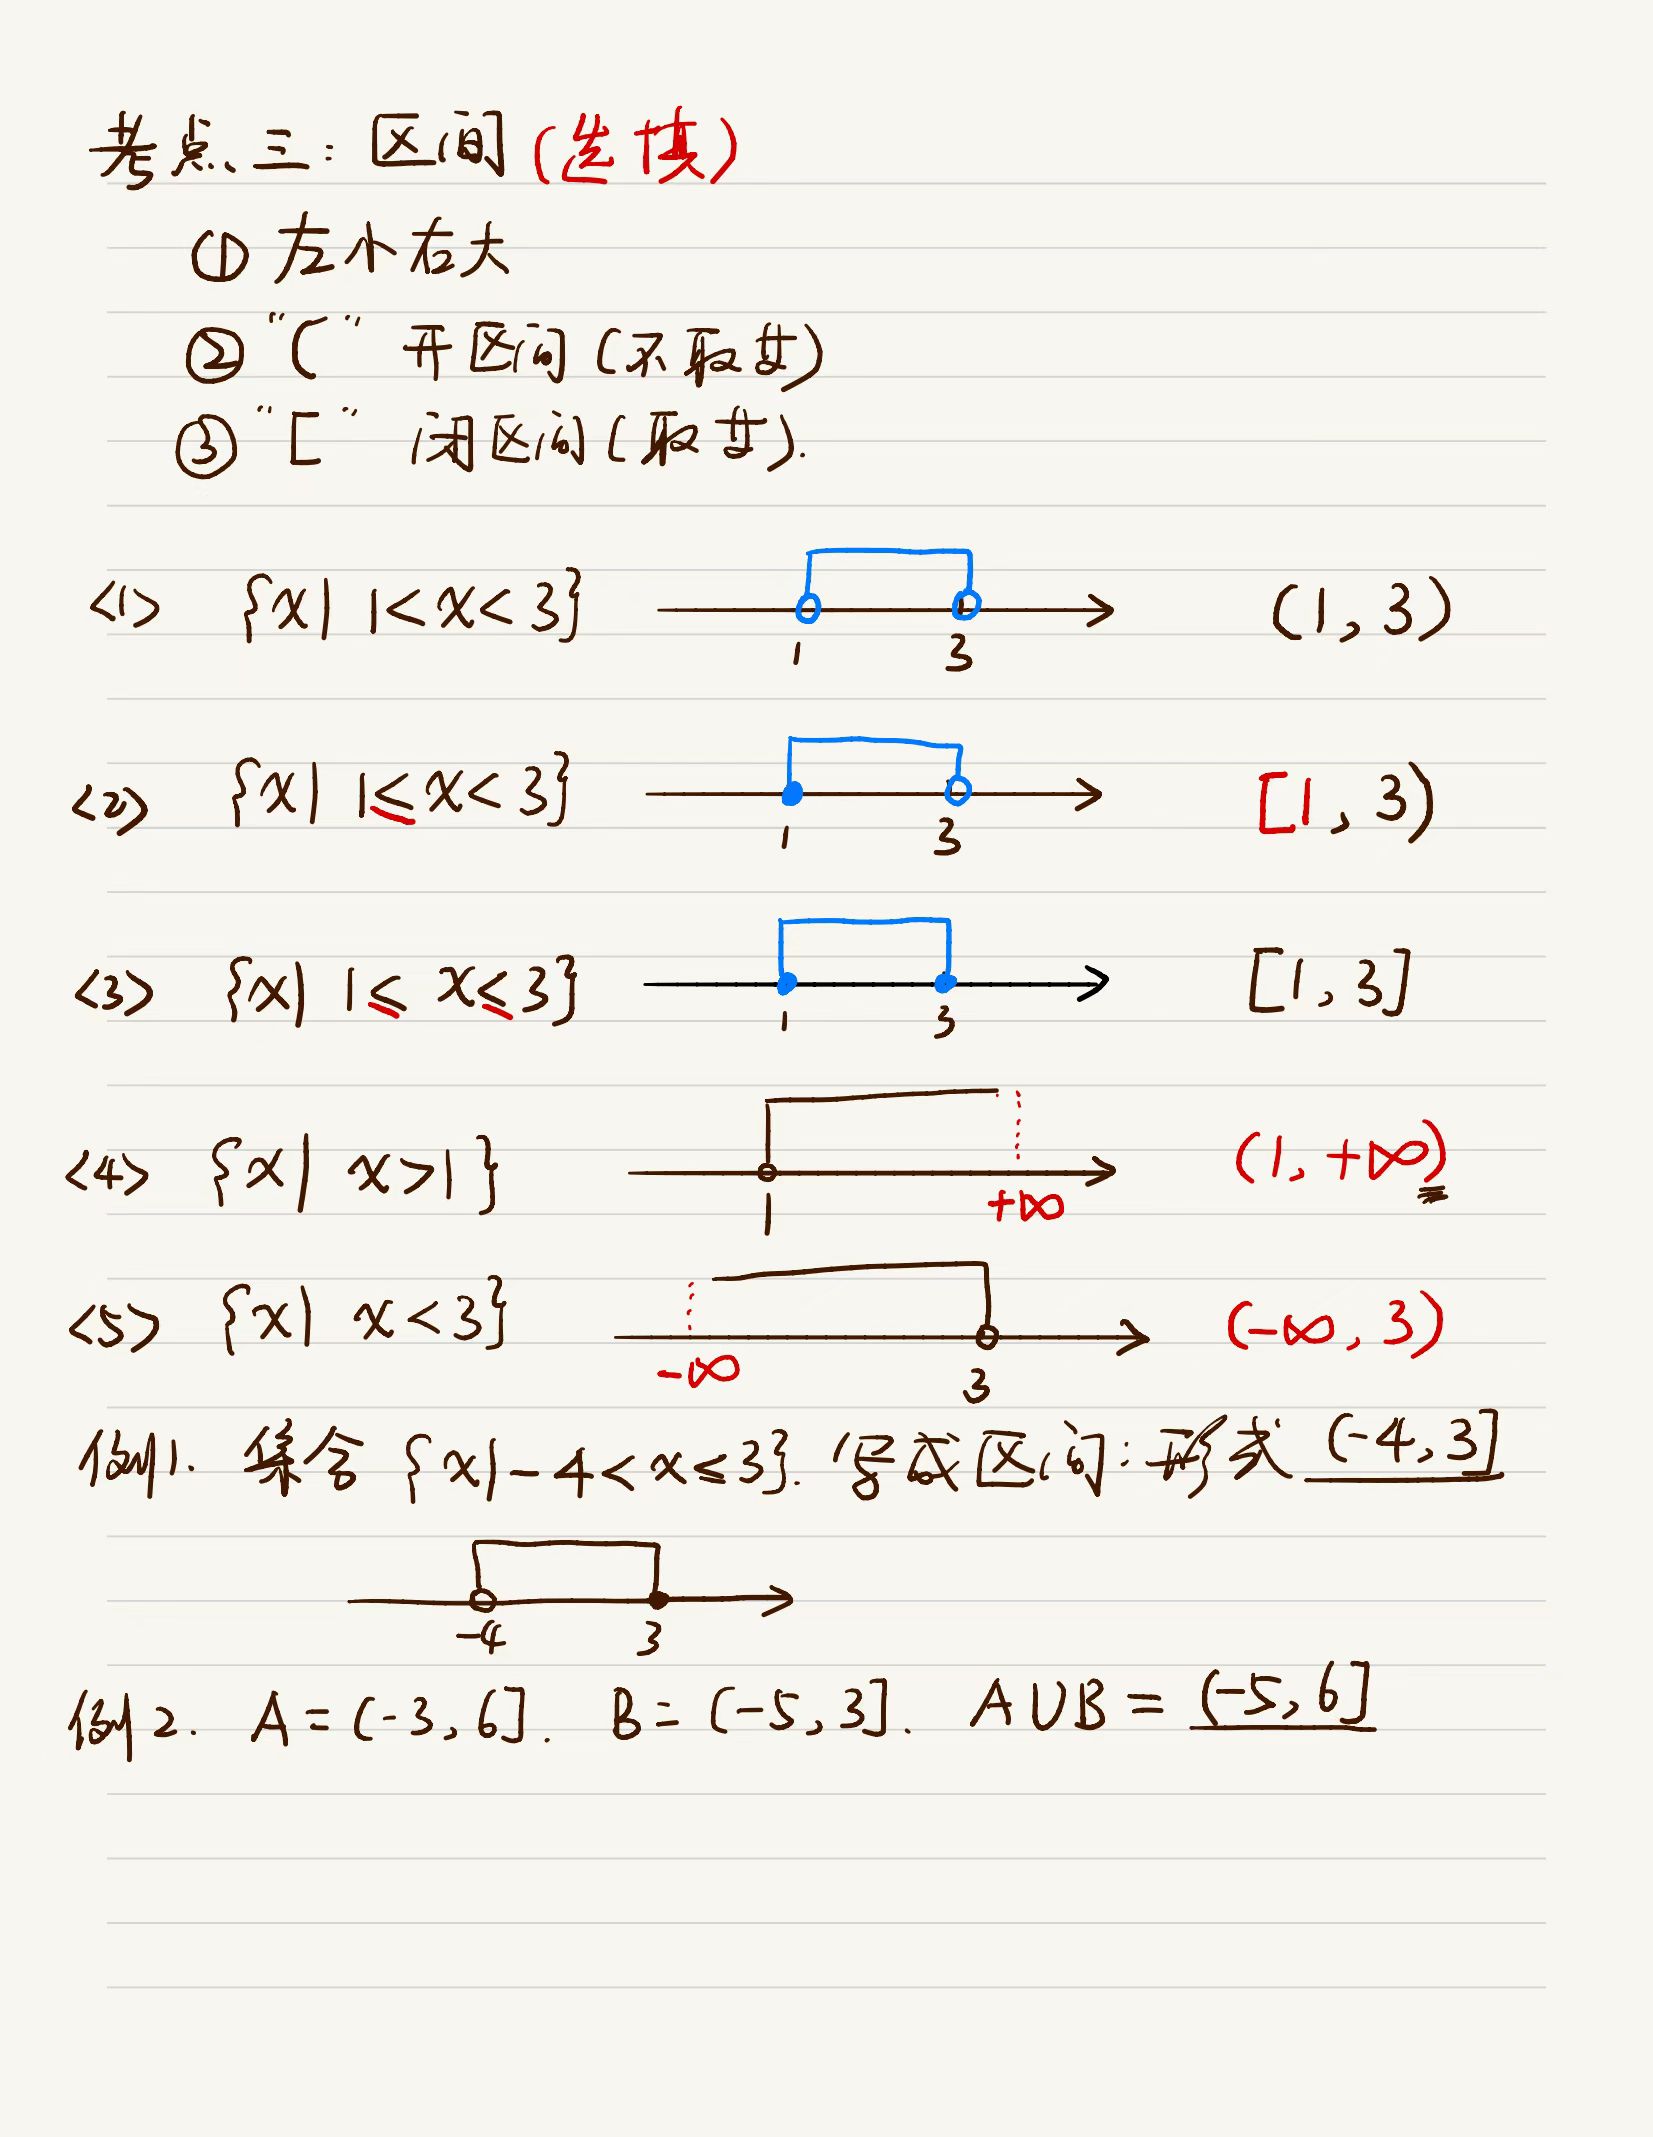 考点三：区间(选填)
① 左小右大
② "(" 开区间(不取艹)
③ "[" 闭区间(取艹).
<1> {x| 1<x<3} 1 3 (1, 3)
<2> {x| 1≤x<3} 1 3 [1, 3)
<3> {x| 1≤x≤3} 1 3 [1, 3]
<4> {x| x>1} 1 +∞ (1, +∞)
<5> {x| x<3} -∞ 3 (-∞, 3)
例1. 集合 {x|-4<x≤3}. 写成区间:形式 (-4,3]
-4 3
例2. A=(-3,6]. B=(-5,3]. A∪B=(-5,6]